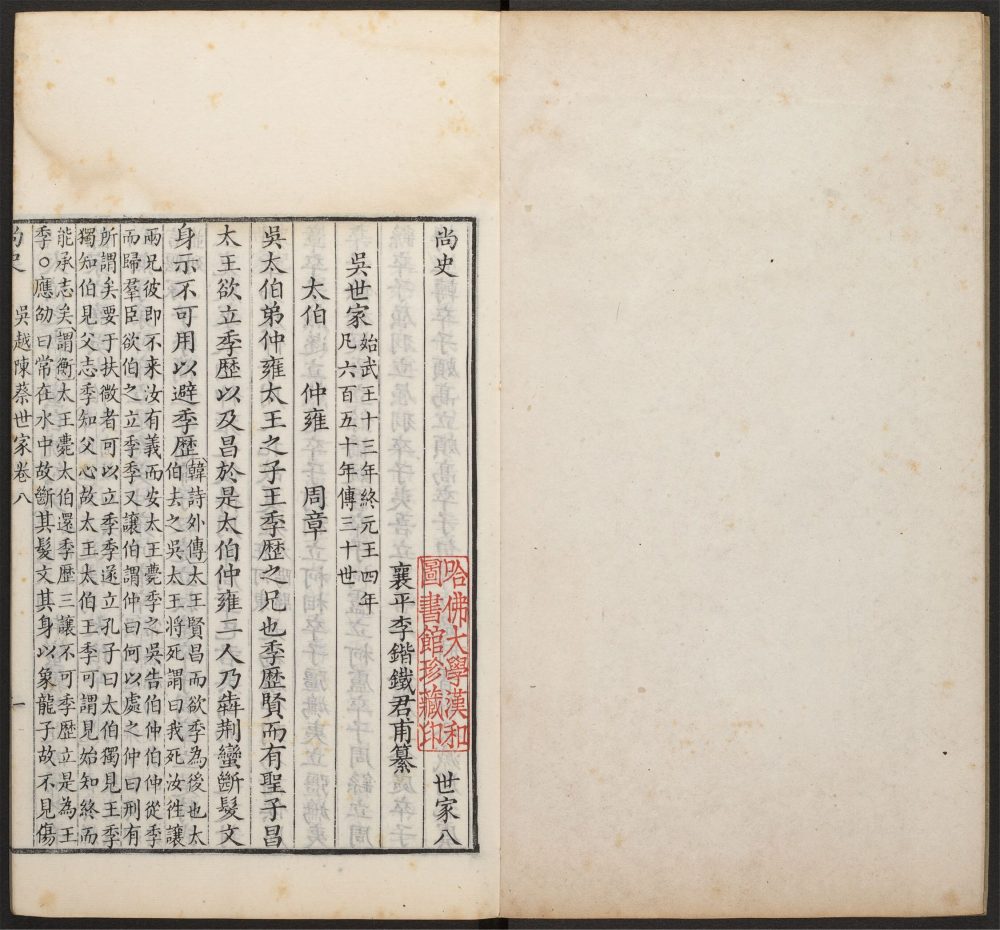 尚史 世家八
襄平李鍇鐵君甫纂
吳世家始武王十三年終元王四年
凡六百五十年傳三十世
太伯 仲雍 周章
吳太伯弟仲雍太王之子王季歷之兄也季歷賢而有聖子昌
太王欲立季歷以及昌於是太伯仲雍二人乃犇荆蠻斷髮文
身示不可用以避季歷韓詩外傳太王賢昌而欲季為後也太
伯去之吳太王將死謂曰我死汝徃讓
兩兄彼即不来汝有義而安太王薨季之吳告伯仲伯仲從季
而歸羣臣欲伯之立季季又讓伯謂仲曰何以處之仲曰刑有
所謂矣要于扶微者可以立季季遂立孔子曰太伯獨見王季
獨知伯見父志季知父心故太王太伯王季可謂見始知終而
能承志矣謂衡太王薨太伯還季歷三讓不可季歷立是為王
季○應劭曰常在水中故斷其髮文其身以象龍子故不見傷
吳越陳蔡世家卷八 一
哈佛大學漢和
圖書館珍藏印